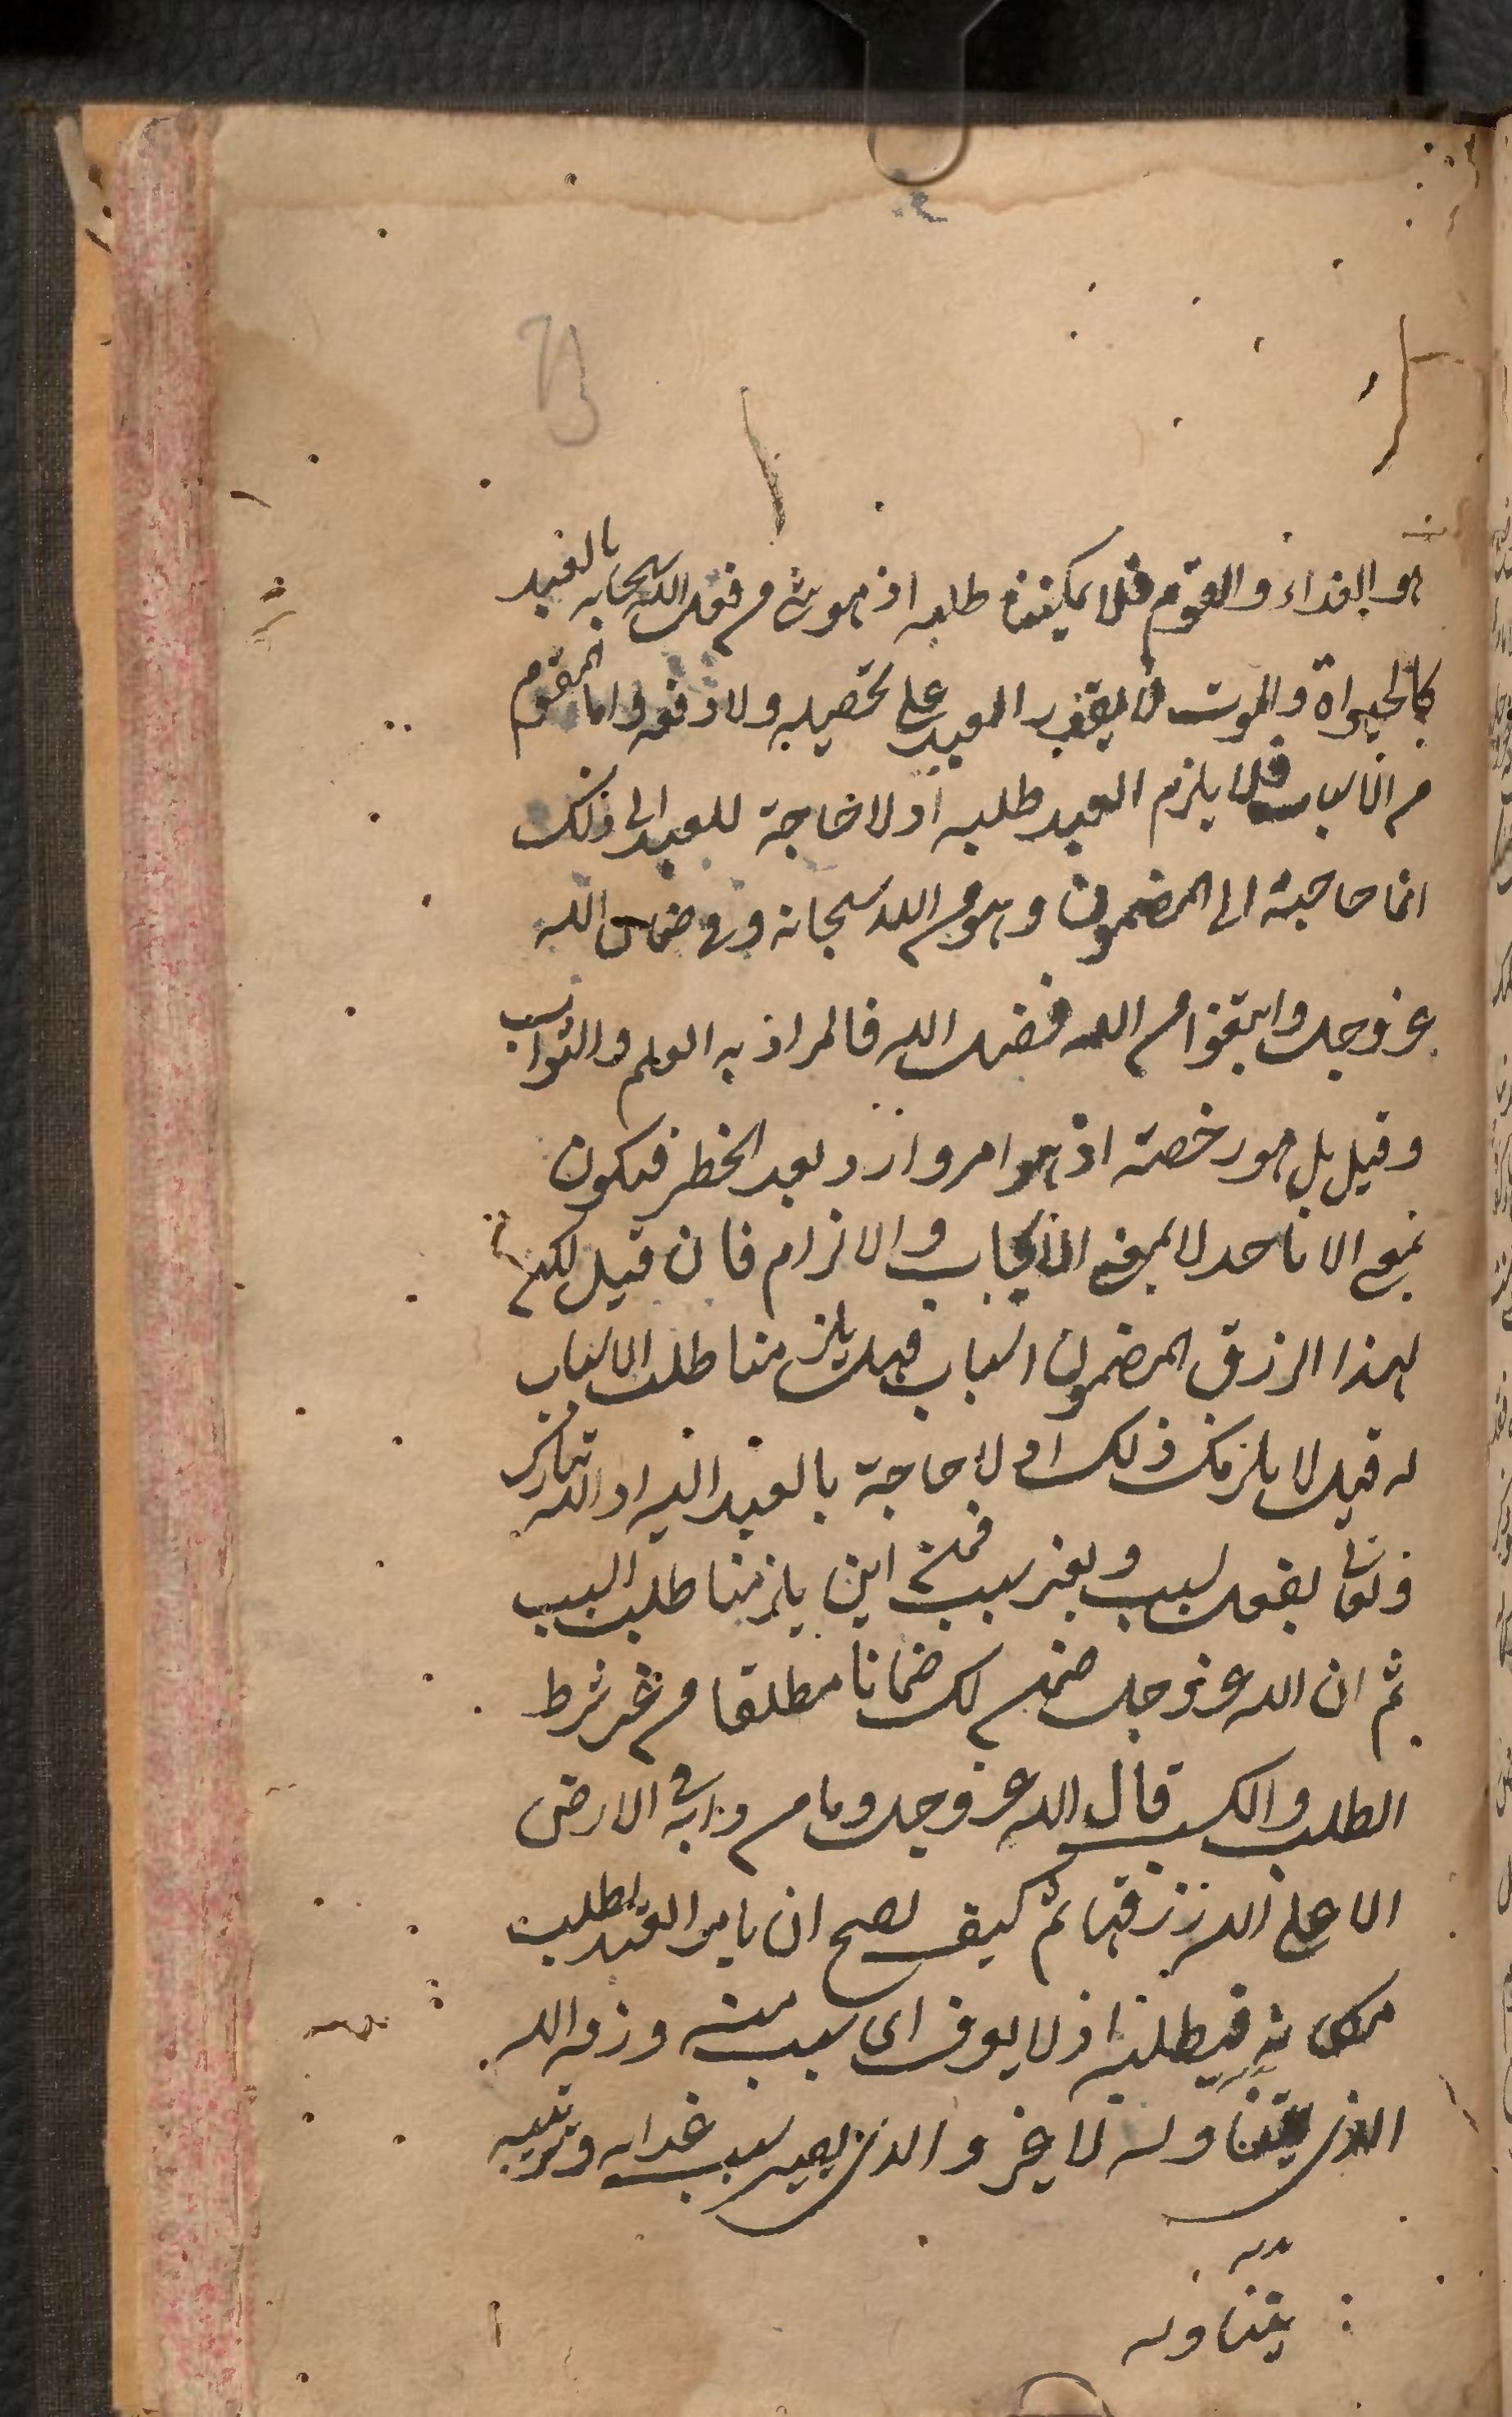 هو الغذاء والقوم فلا يمكننا طلبه اذ هو شئ من فعل الله سبحانه بالعبد
كالحيواة والموت لا يقدر العبد على تحصيله ولا دفعه واما المقسوم
من الاسباب فلا يلزم العبد طلبه اذ لا حاجة للعبد الى ذلك
انما حاجته الى المضمون وهو من الله سبحانه وفى ضمان الله
عز وجل وابتغوا من فضل الله فالمراد به العلم والثواب
وقيل بل هو رخصة اذ هو امر وارد بعد الحظر فيكون
بمعنى الاباحة لا بمعنى الايجاب والالزام فان قيل لكن
لهذا الرزق المضمون اسباب فهل يلزم منا طلب الاسباب
له قيل لا يلزمك ذلك اذ لا حاجة بالعبد اليه اذ الله تبارك
وتعالى يفعل بسبب وبغير سبب فمن اين يلزمنا طلب السبب
ثم ان الله عز وجل ضمن لك ضمانا مطلقا من غير شرط
الطلب والكسب قال الله عز وجل وما من دابة فى الارض
الا على الله رزقها ثم كيف يصح ان يامر العبد بطلب
مكانه فيطلبه اذ لا يعرف اى سبب منه رزقه
الذى يتناوله لا غير والذى يصير سبب غذائه وتربيته
يتناوله